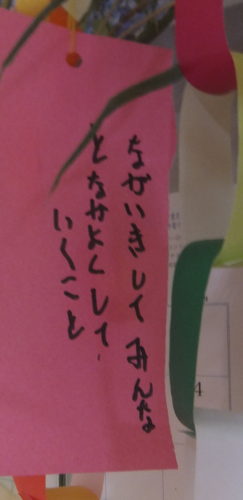 ながいきして みんな
となかよくして
いくこと
4